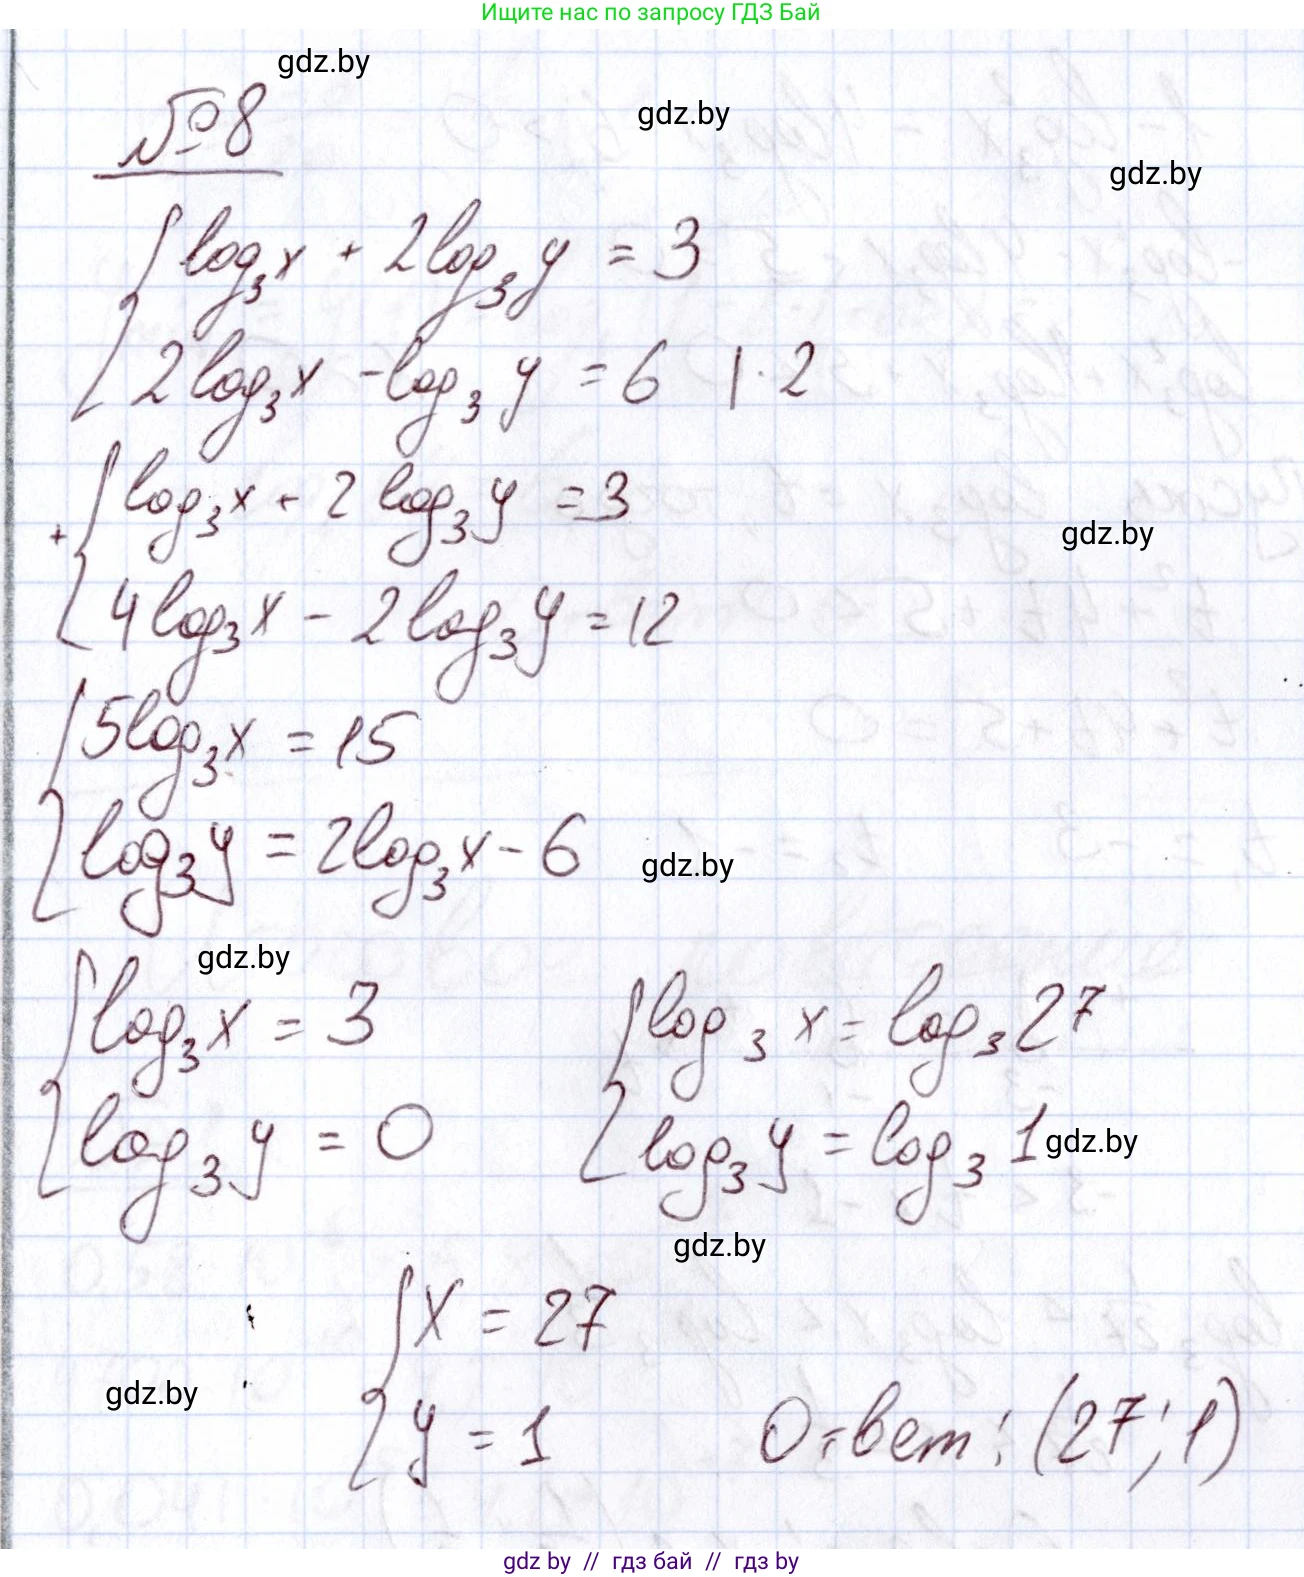 Ищите нас по запросу ГДЗ Бай
gdz.by
№8
gdz.by
gdz.by
{ log₃x + 2log₃y = 3
2log₃x - log₃y = 6 | · 2
+ { log₃x + 2log₃y = 3
gdz.by
4log₃x - 2log₃y = 12
{ 5log₃x = 15
log₃y = 2log₃x - 6
gdz.by
gdz.by
{ log₃x = 3 { log₃x = log₃27
log₃y = 0 log₃y = log₃1
gdz.by
gdz.by
{ x = 27
gdz.by
y = 1 Ответ: (27; 1)
gdz by // гдз бай // гдз by